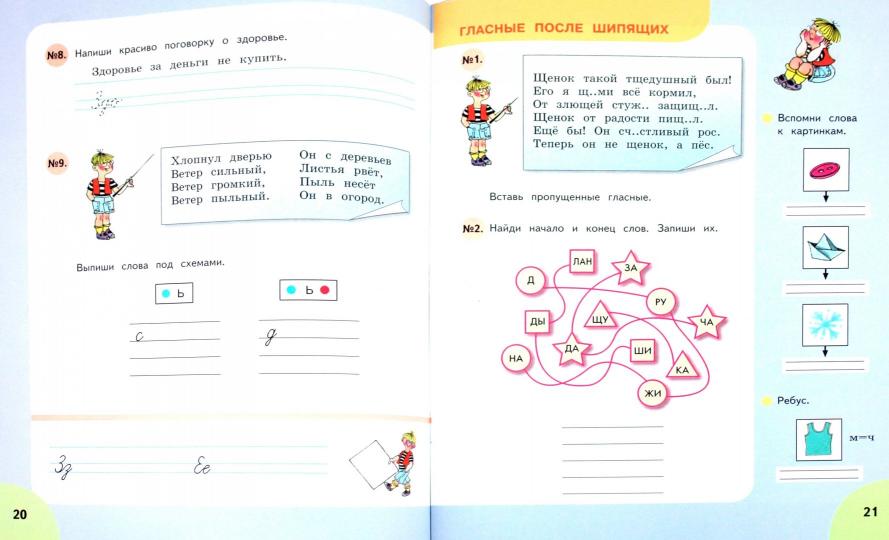 №8. Напиши красиво поговорку о здоровье.
Здоровье за деньги не купить.
Зд
№9.
Хлопнул дверью
Ветер сильный,
Ветер громкий,
Ветер пыльный.
Он с деревьев
Листья рвёт,
Пыль несёт
Он в огород.
Выпиши слова под схемами.
Ь
Ь
с
д
Зз Ее
20
ГЛАСНЫЕ ПОСЛЕ ШИПЯЩИХ
№1.
Щенок такой тщедушный был!
Его я щ..ми всё кормил,
От злющей стуж.. защищ..л.
Щенок от радости пищ..л.
Ещё бы! Он сч..стливый рос.
Теперь он не щенок, а пёс.
Вставь пропущенные гласные.
№2. Найди начало и конец слов. Запиши их.
ЛАН
ЗА
Д
РУ
ДЫ
ЩУ
ЧА
НА
ДА
ШИ
КА
ЖИ
Вспомни слова
к картинкам.
Ребус.
м=ч
21